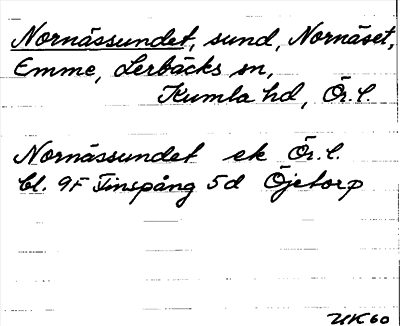 Nornässundet, sund, Nornäset,
Emme, Lerbäcks sn,
Kumla hd, Ör. l.
Nornässundet ek Ör. l.
bl. 9F Finspång 5d Öjetorp
UK60